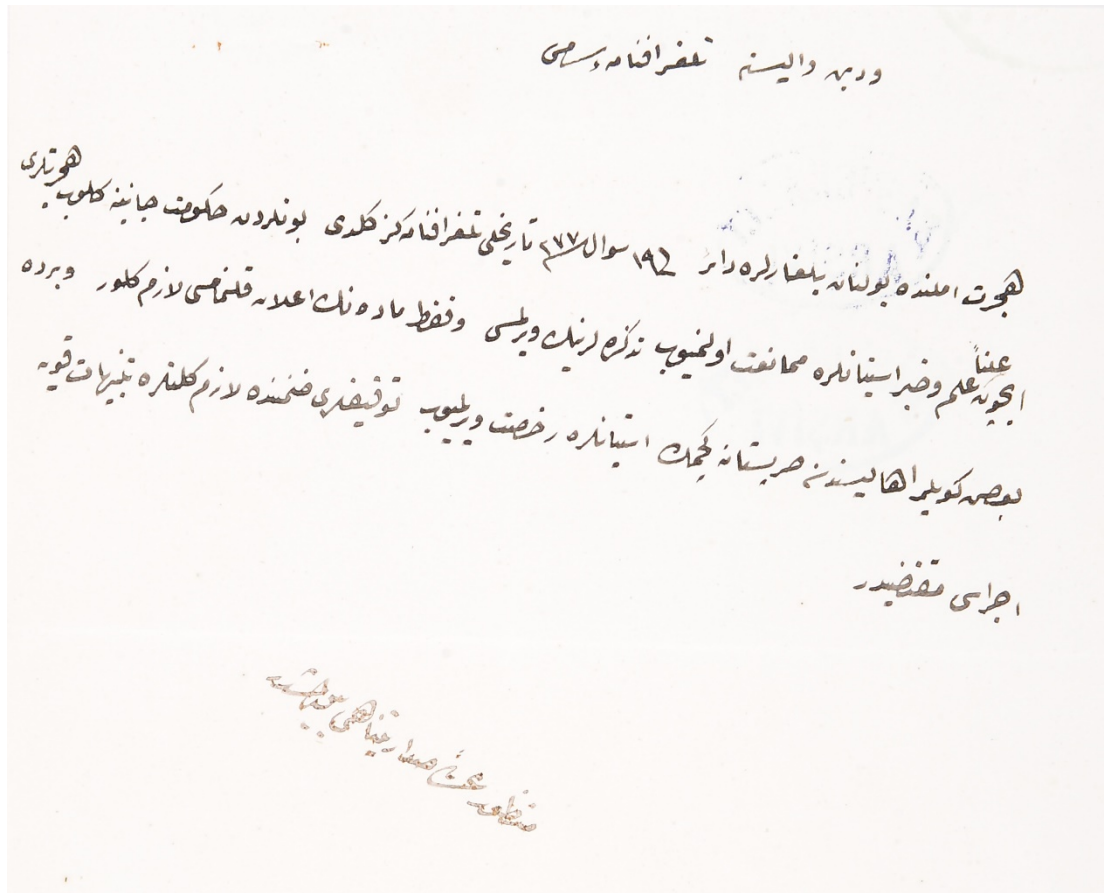 ودین والیسنه تلغرافنامه سامی
هجرت املنده بولنان بلغارلره دائر ١٩ شوال ٢٧٧ تاریخلی تلغرافنامه‌کز کلدی بونلردن حکومت جانبنه کلوب هجرتلری
ایچون علناً علم وخبر استیانلره ممانعت اولنمیوب تذکره لرینک ویرلمسی وفقط ماده نک اعلان قلنمامسی لازم کلور وبرده
بعض کویلر اهالیسندن صربستانه کچمک استیانلره رخصت ویرلمیوب توقیفلری ضمننده لازم کلنلره تنبیهات قویه
اجراسی مقتضیدر
منظور صدارتپناهی بیورلمشدر